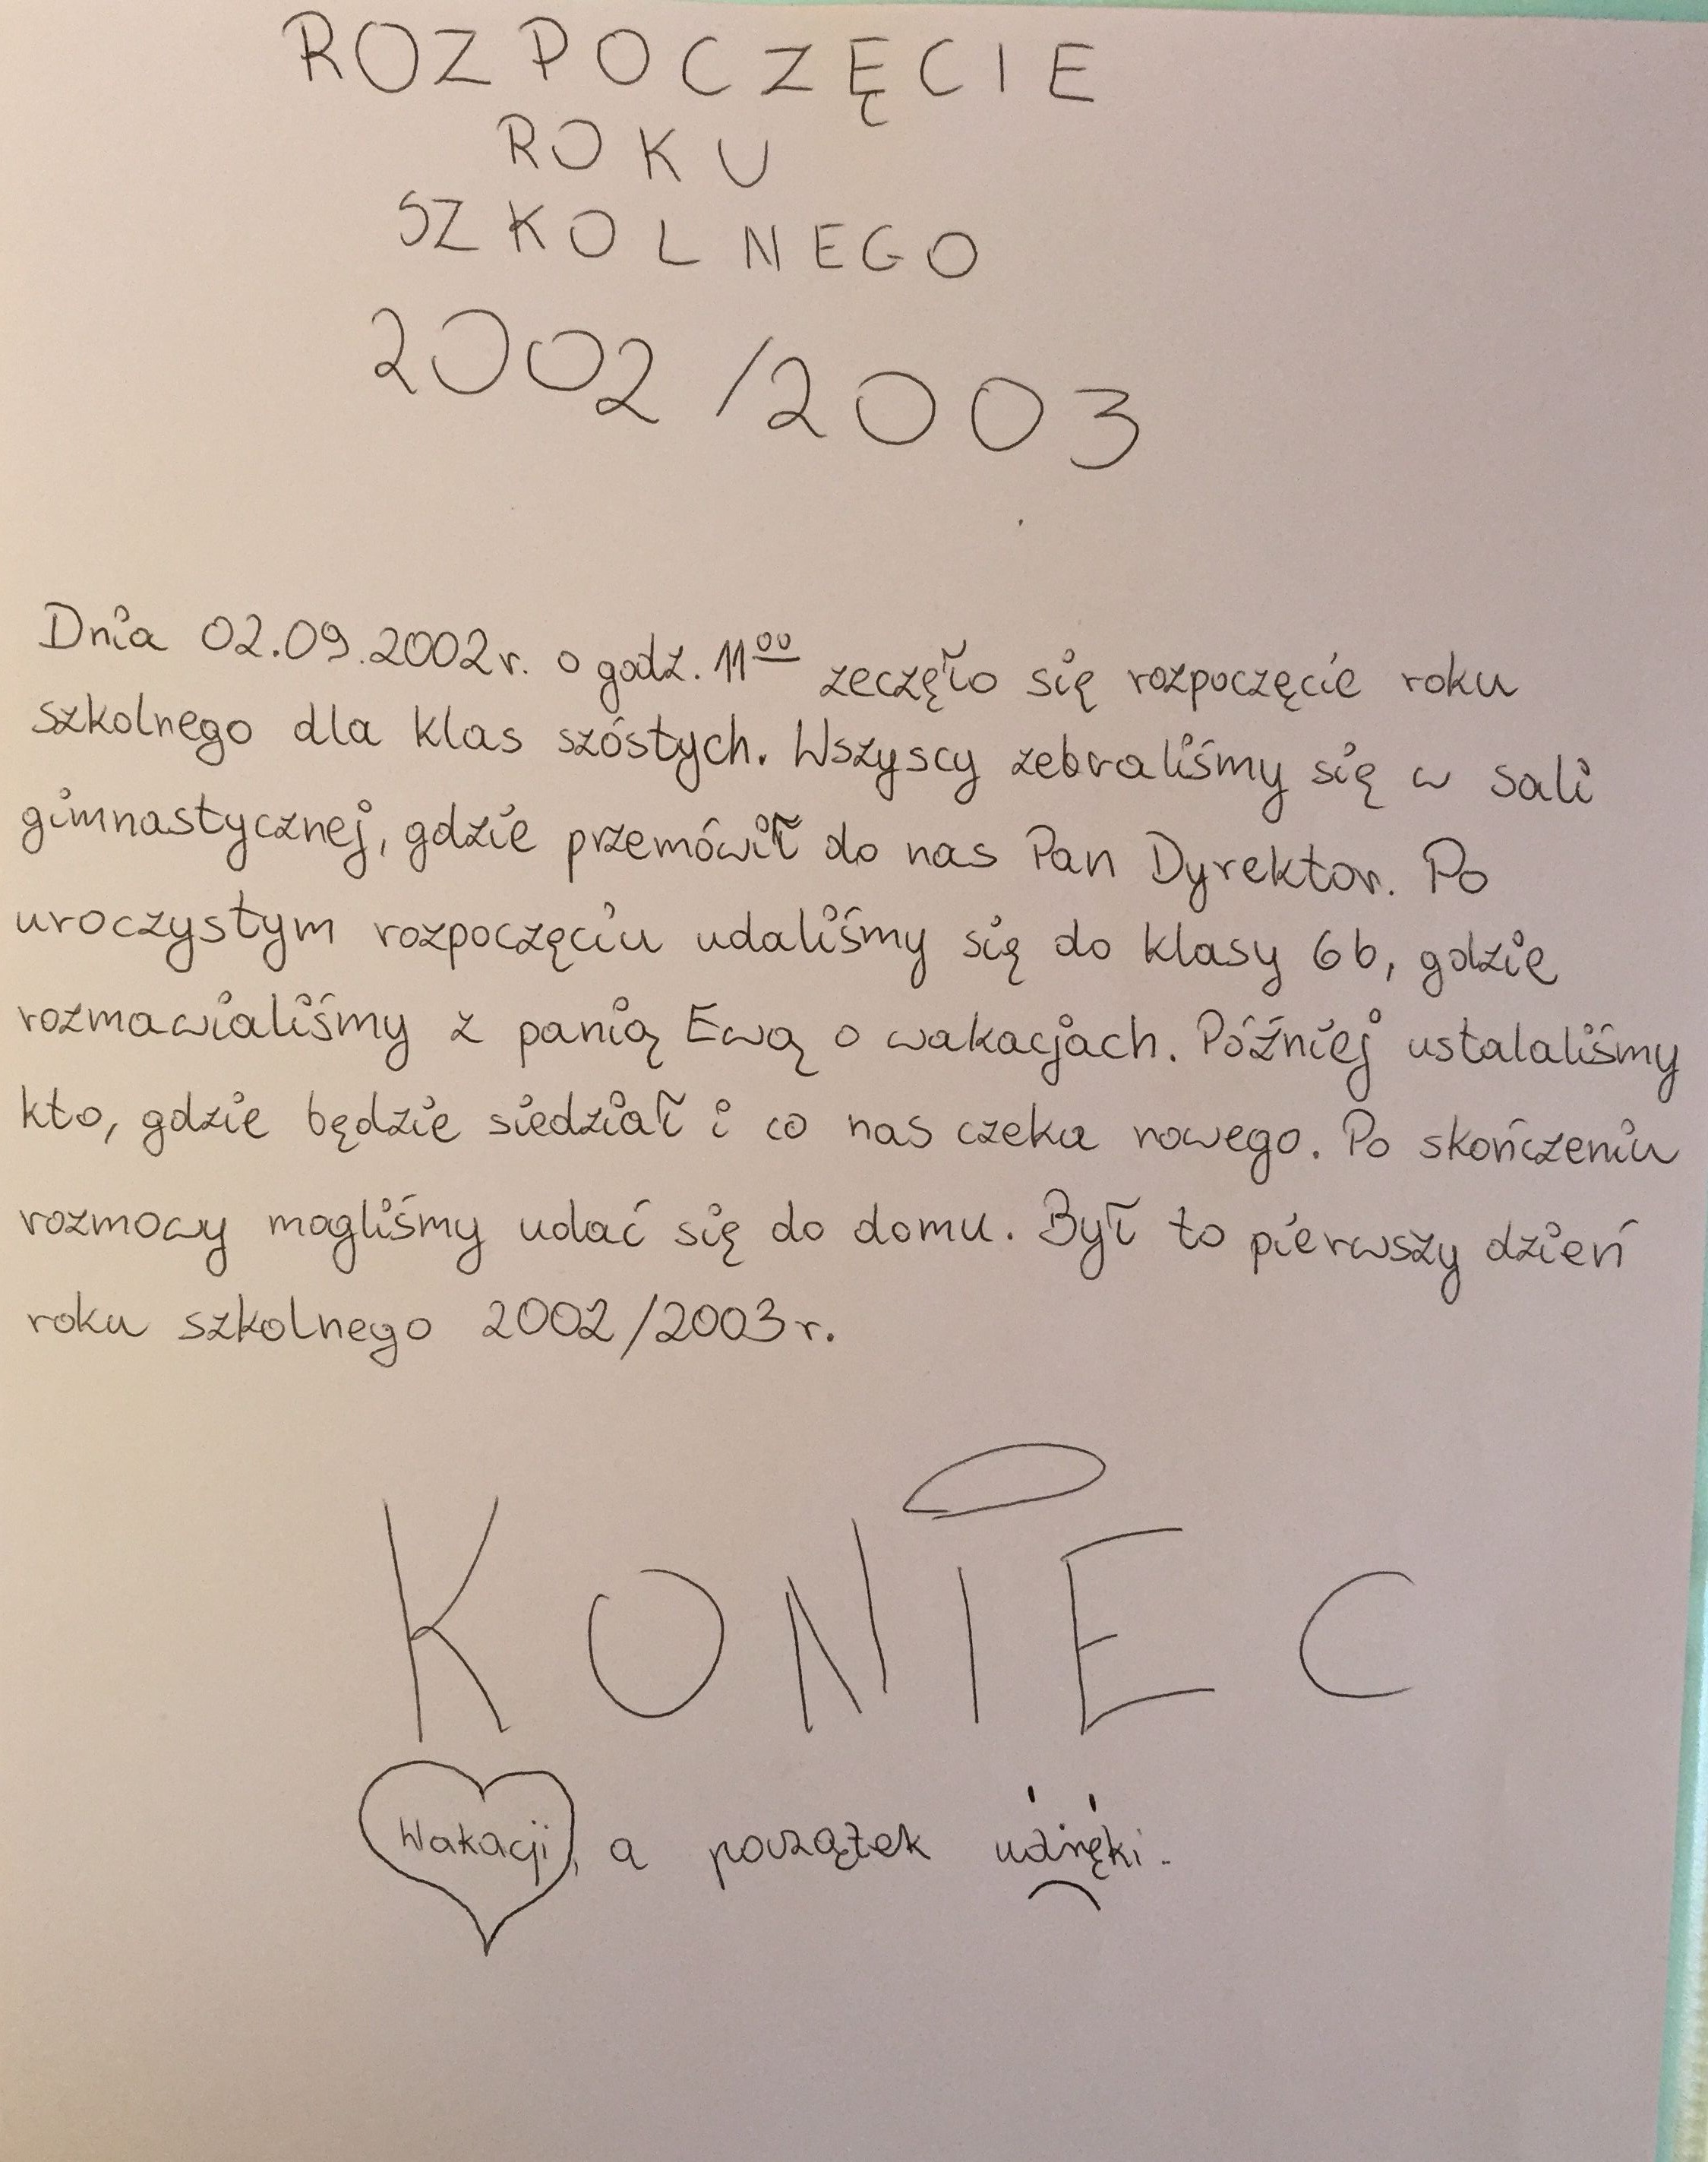 ROZPOCZĘCIE
ROKU
SZKOLNEGO
2002/2003
Dnia 02.09.2002r. o godz. 11⁰⁰ zeczęło się rozpoczęcie roku
szkolnego dla klas szóstych. Wszyscy zebraliśmy się w sali
gimnastycznej, gdzie przemówił do nas Pan Dyrektor. Po
uroczystym rozpoczęciu udaliśmy się do klasy 6b, gdzie
rozmawialiśmy z panią Ewą o wakacjach. Później ustalaliśmy
kto, gdzie będzie siedział i co nas czeka nowego. Po skończeniu
rozmowy mogliśmy udać się do domu. Był to pierwszy dzień
roku szkolnego 2002/2003r.
KONIEC
Wakacji, a początek udręki.